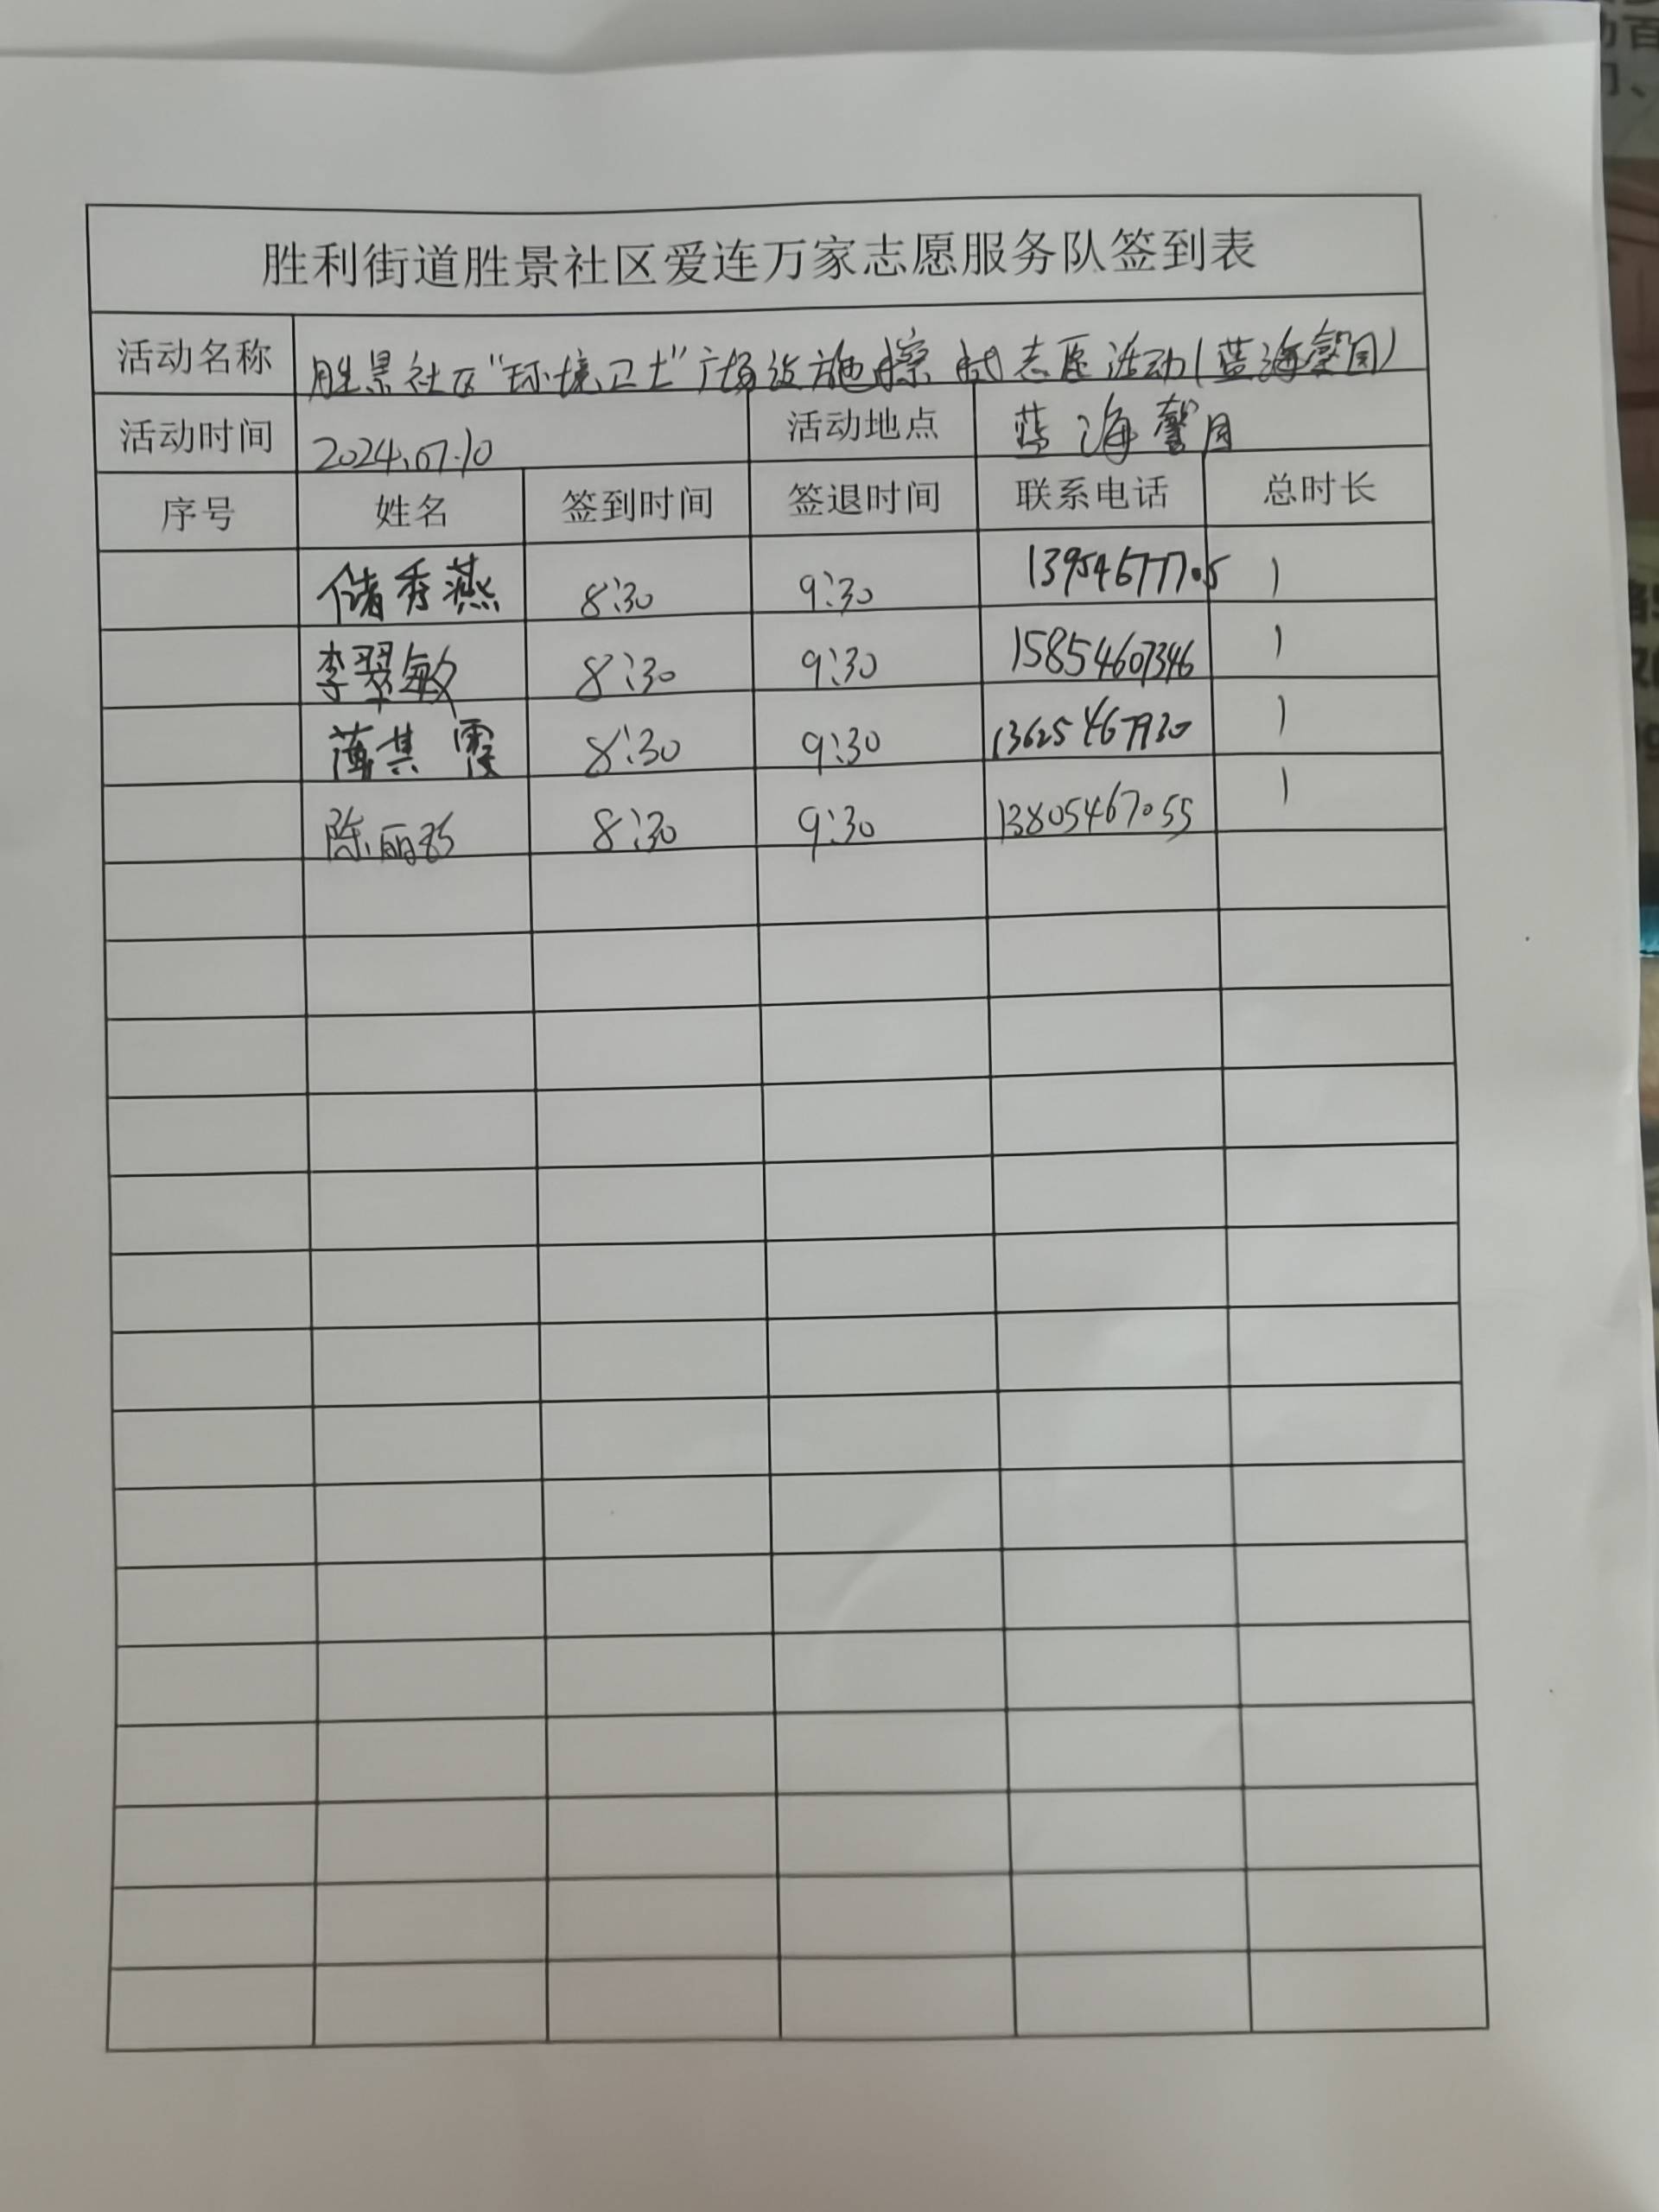 胜利街道胜景社区爱连万家志愿服务队签到表
活动名称 胜景社区"环境卫士"广场设施擦拭志愿活动(蓝海馨园)
活动时间 2024.07.10 活动地点 蓝海馨园
序号 姓名 签到时间 签退时间 联系电话 总时长
储秀燕 8:30 9:30 1
李翠敏 8:30 9:30 15854607346 1
薄其霞 8:30 9:30 13625467930 1
陈丽 8:30 9:30 13805467055 1